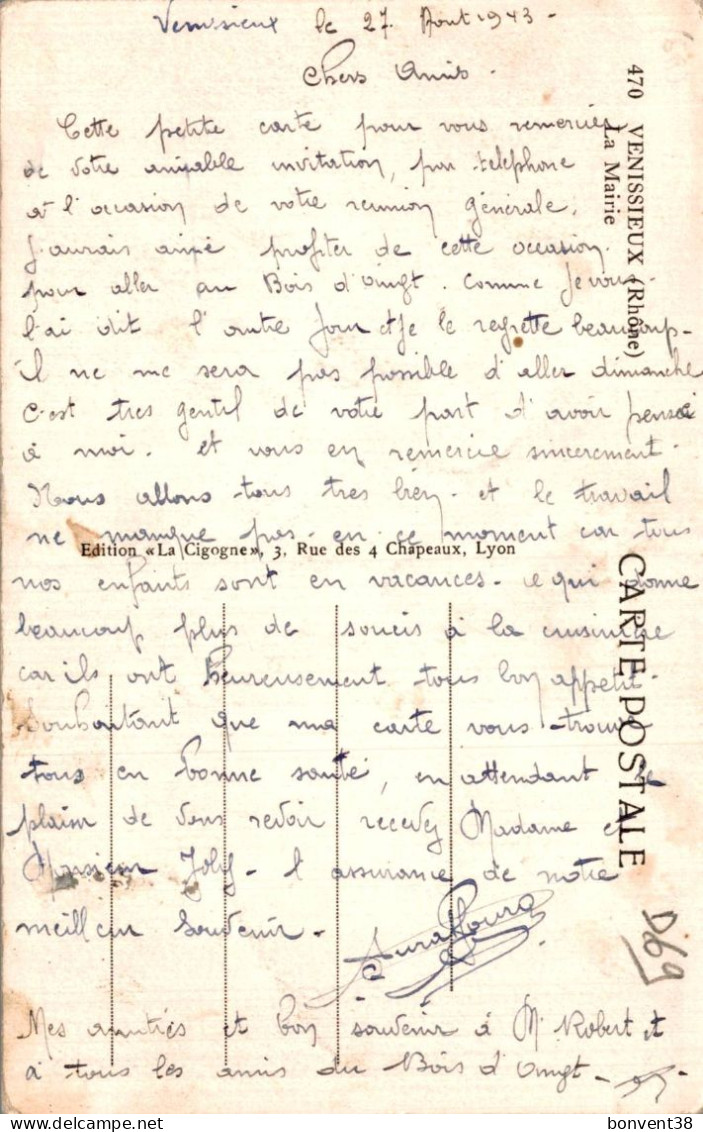 Venissieux le 27 Aout 1943 -
Chers Amis -
Cette petite carte pour vous remerciés
de votre aimable invitation, par telephone
a l'occasion de votre reunion générale.
J'aurais aimé profiter de cette occasion.
pour aller au Bois d'Oingt. Comme Je vous
l'ai dit l'autre Jour et Je le regrette beaucoup -
il ne me sera pas possible d'aller dimanche
C'est tres gentil de votre part d'avoir pensée
à moi. et vous en remercie sincerement.
Nous allons tous tres bien. et le travail
ne manque pas - en ce moment car tous
nos enfants sont en vacances - ce qui donne
beaucoup plus de soucis à la cuisinière
car ils ont heureusement tous bon appetit.
Souhaitant que ma carte vous trouve
tous en bonne santé, en attendant le
plaisir de vous revoir recevez Madame et
Monsieur Joly - l'assurance de notre
meilleur Souvenir -
Mes amitiés et bon souvenir à M. Robert et
à tous les amis du Bois d'Oingt -
470 VENISSIEUX (Rhône)
La Mairie
Edition «La Cigogne», 3, Rue des 4 Chapeaux, Lyon
CARTE POSTALE
D69
bonvent38